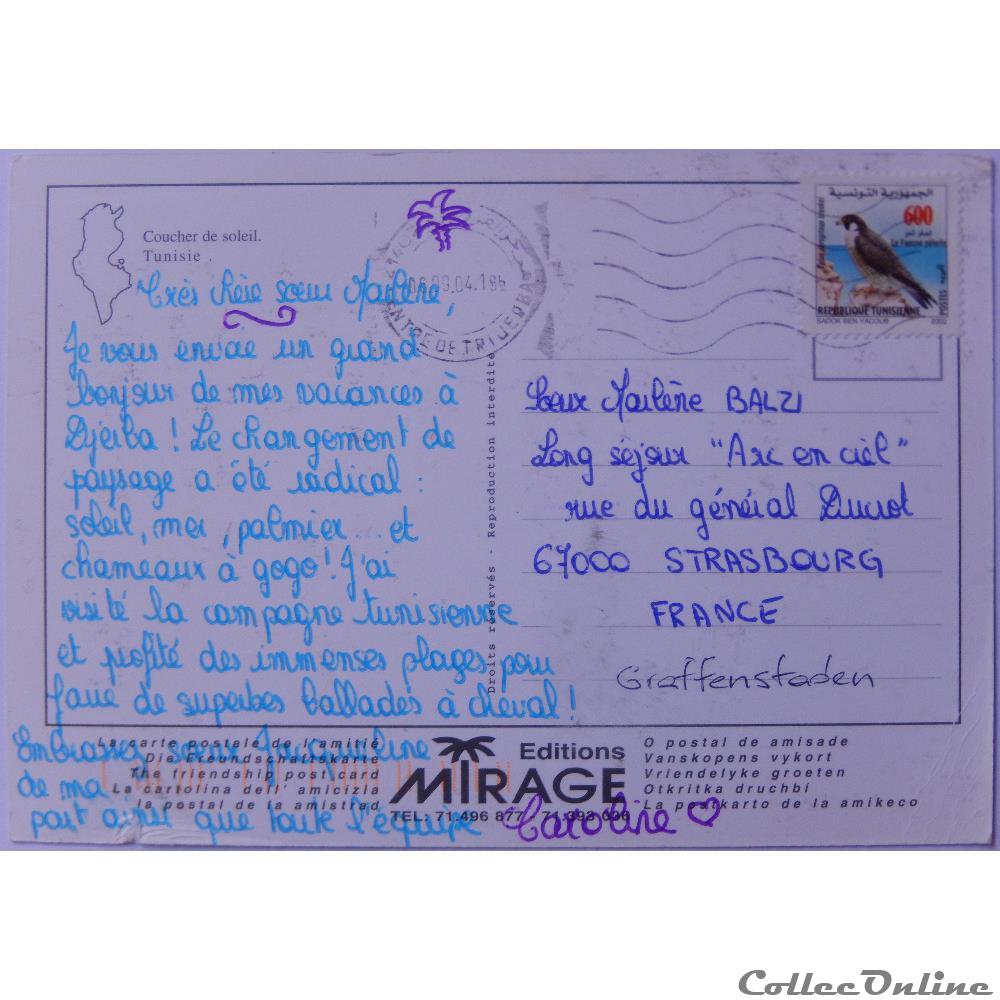 Coucher de soleil.
Tunisie .
Très chère sœur Marlène,
Je vous envoie un grand
bonjour de mes vacances à
Djerba ! Le changement de
paysage a été radical :
soleil, mer, palmier... et
chameaux à gogo ! J'ai
visité la campagne tunisienne
et profité des immenses plages pour
faire de superbes ballades à cheval !
Embrassez sœur Jacqueline
de ma
part ainsi que toute l'équipe
Caroline
Droits réservés - Reproduction interdite
06.09.04.19
CENTRE DE TRI JERBA
الجمهورية التونسية
600
Le Faucon pèlerin
REPUBLIQUE TUNISIENNE
SADOK BEN YACOUB
2002
POSTES
Sœur Marlène BALZI
Long séjour "Arc en ciel"
rue du général Ducrot
67000 STRASBOURG
FRANCE
Graffenstaden
La carte postale de l'amitié
Die Freundschaftskarte
The friendship post card
La cartolina dell' amicizia
la postal de la amistrad
Editions
MIRAGE
TEL: 71.496 877 - 71.393 036
O postal de amisade
Vanskopens vykort
Vriendelyke groeten
Otkritka druchbi
La postkarto de la amikeco
CollecOnline